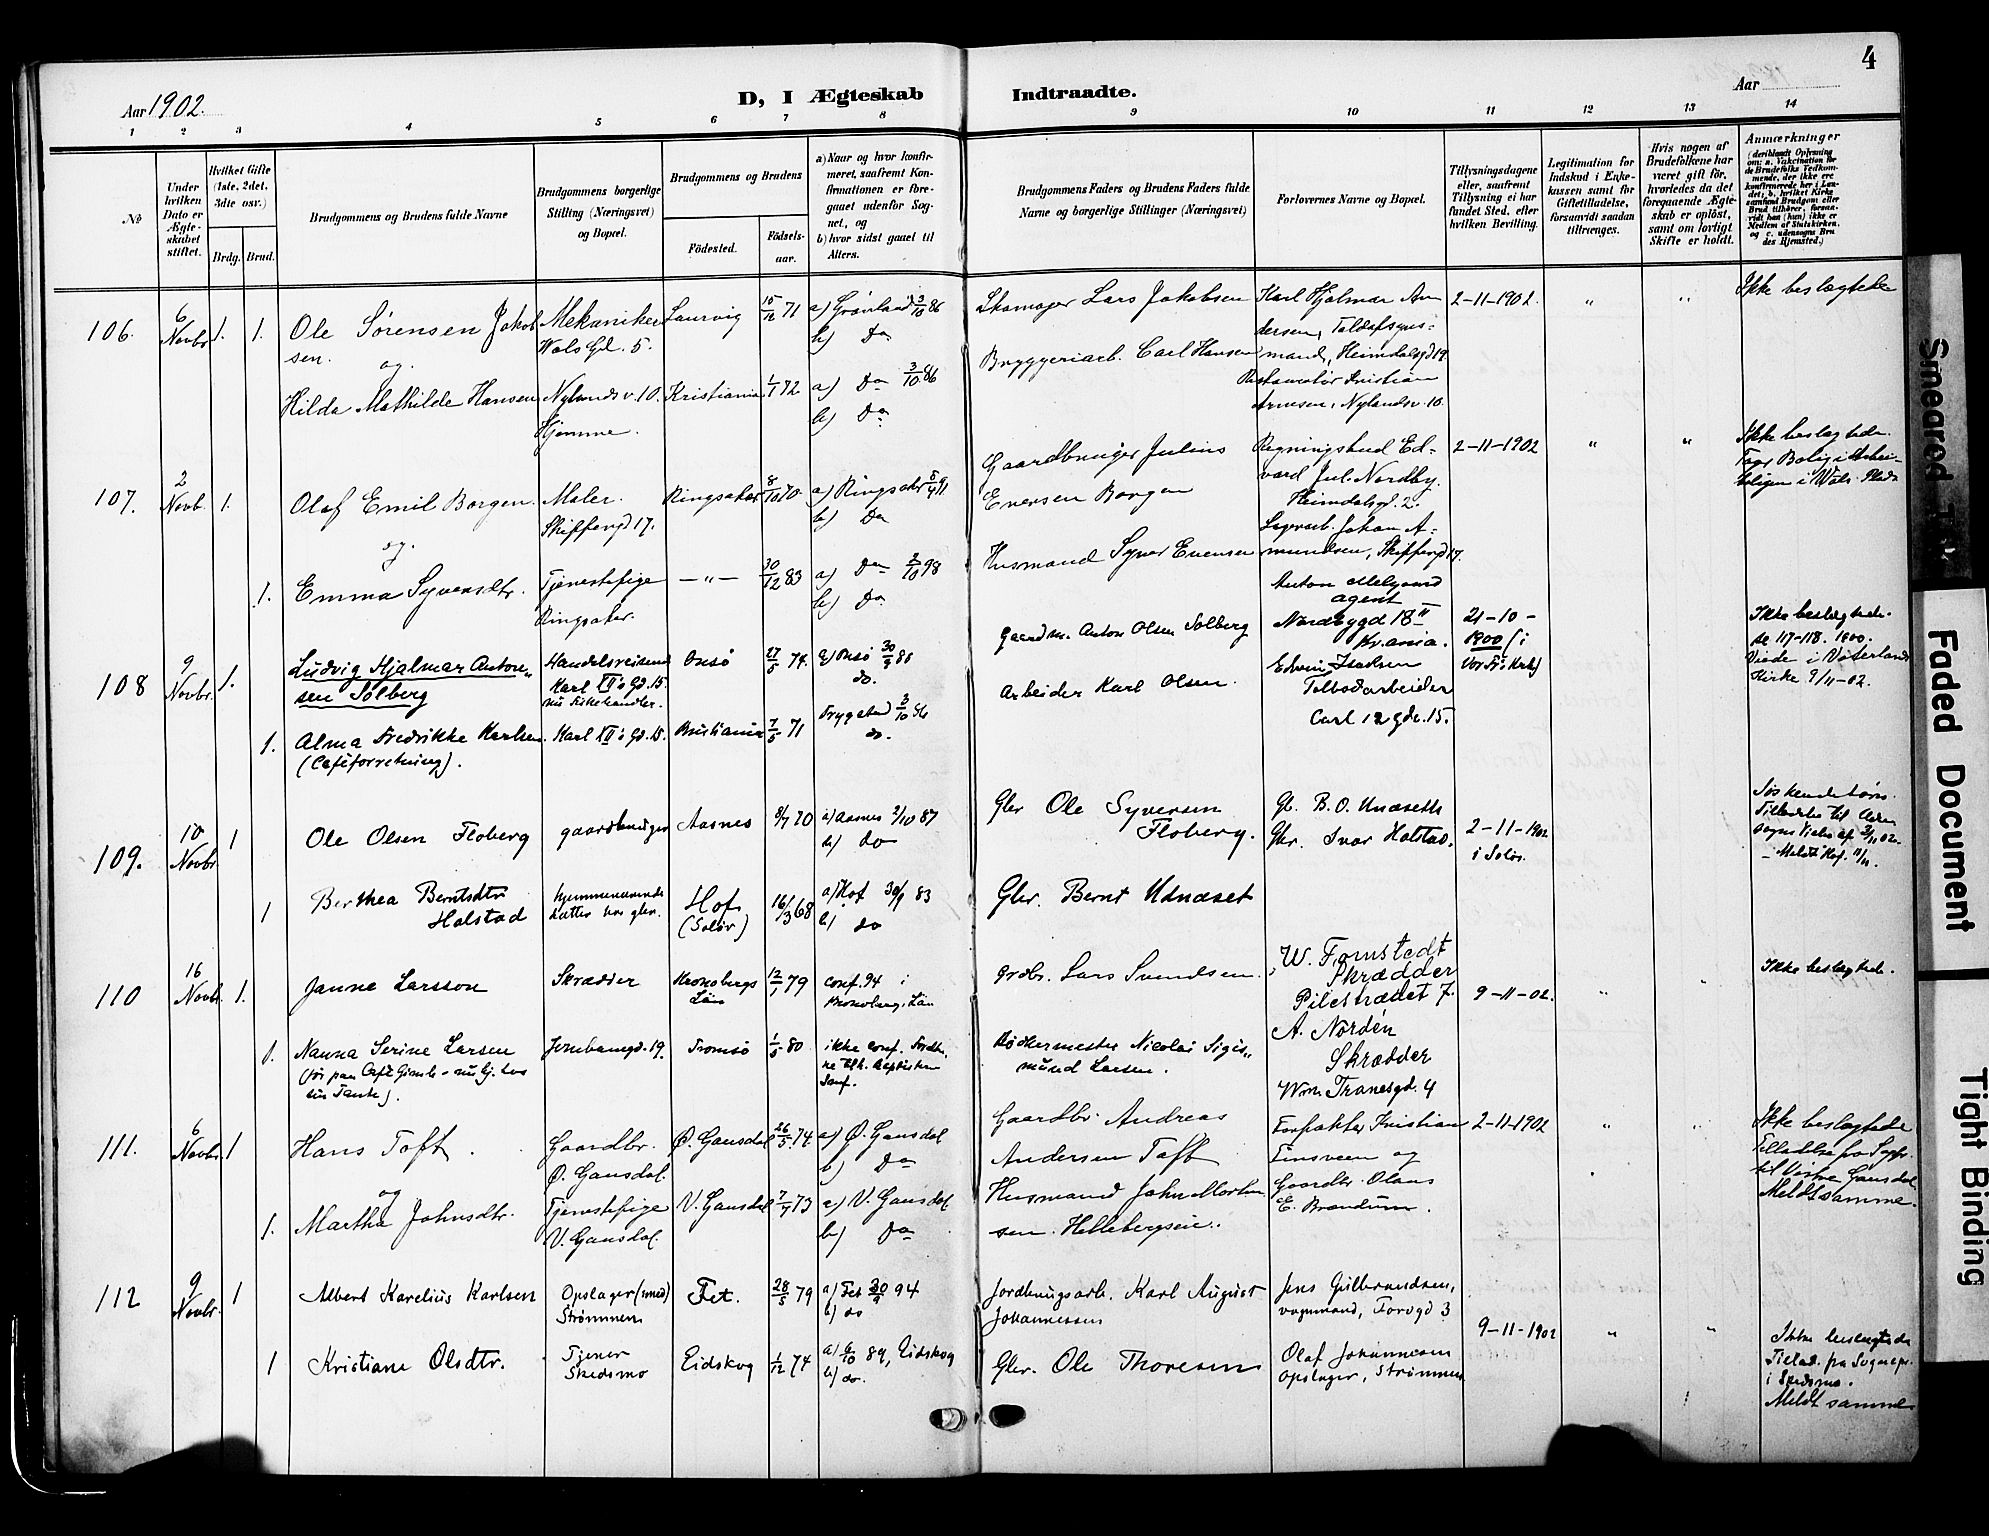 4
Aar 1902.
D, I Ægteskab Indtraadte.
Aar
1 2 3 4 5 6 7 8 9 10 11 12 13 14
No
Under hvilken Dato er Ægteskabet stiftet.
Hvilket Gifte (1ste, 2det, 3dte osv.)
Brdg. Brud.
Brudgommens og Brudens fulde Navne
Brudgommens borgerlige Stilling (Næringsvei) og Bopæl.
Brudgommens og Brudens
Fødested.
Fødselsaar.
a) Naar og hvor konfirmeret, saafremt Konfirmationen er foregaaet udenfor Sognet, og
b) hvor sidst gaaet til Alters.
Brudgommens Faders og Brudens Faders fulde Navne og borgerlige Stillinger (Næringsvei)
Forlovernes Navne og Bopæl.
Tillysningsdagene eller, saafremt Tillysning ei har fundet Sted, efter hvilken Bevilling.
Legitimation for Indskud i Enkekassen samt for Giftetilladelse, forsaavidt saadan tiltrænges.
Hvis nogen af Brudefolkene har været gift før, hvorledes da det foregaaende Ægteskab er opløst, samt om lovligt Skifte er holdt.
Anmærkninger
106. 6 Novbr. 1. 1.
Ole Sørensen Jakobsen.
og
Hilda Mathilde Hansen
Mekaniker
Wols Gd. 5.
Nylandsv. 10.
Hjemme.
Laurvig
Kristiania
15/12 71
1/1 72
a) Grønland 3/10 86
b) Do
a) Do 3/10 86
b) Do
Skomager Lars Jakobsen
Bryggeriarb. Carl Hansen
Karl Hjalmar Andersen, Toldopsynsmand, Heimdalsgd 19.
Restauratør Kristian
Arnesen, Nylandsv. 10.
2-11-1902.
" "
Ikke beslægtede
107. 2 Novb. 1.
Olaf Emil Borgen.
og
1. Emma Syversdtr.
Maler.
Skippergd 17.
Tjenestepige
Ringsaker.
Ringsaker
-"-
8/10 70
30/12 83
a) Ringsaker 5/4 91
b) Do
a) Do 2/10 98
b) Do
Gaardbruger Julius
Evensen Borgen
Husmand Syver Evensen
Regningsbud Edvard Jul. Nordby.
Heimdalsgd. 2.
Lagerarb. Johan Amundsen, Skippergd 17.
2-11-1902
" "
Ikke beslægtede.
108 9 Novbr. 1.
Ludvig Hjalmar Antonsen Solberg
1. Alma Fredrikke Karlsen.
(Caféforretning).
Handelsreisend
Karl XII's Gd. 15.
nu Fiskehandler.
Karl XII's Gd. 15.
Onsø
Kristiania
27/5 74.
7/5 71
a) Onsø 30/9 88
do.
Trygstad 3/10 86
do.
Gaardm. Anton Olsen Solberg
Arbeider Karl Olsen.
Anton Melgaard
agent
Nordbygd 18 II
Kr.ania.
Edwin Isaksen
Toldbodarbeider
Carl 12 gde. 15.
21-10-1900 (i
Vor Fr. Krk)
Ikke beslægtede.
se 117-118. 1900.
Viede i Vaterlands
Kirke 9/11-02.
109. 10 Novbr. 1
Ole Olsen Floberg
1 Berthea Berntsdtr
Halstad
gaardbruger
hjemmeværende
datter hos gbr.
Aasnes
Hof
(Solør)
8/7 70
16/3 68
a) Aasnes 2/10 87
b) do
a) Hof 30/9 83
b) do
Gbr Ole Syversen
Floberg.
Gbr. Bernt Udnæset
Gb. B. O. Undsetts
Gbr. Ivar Halstad.
2-11-1902
i Solør.
Søskendebørn.
110 16 Novbr. 1.
Janne Larsson
1. Nanna Serine Larsen
Skrædder
Jernbanegd. 19.
Kronobergs
Län
Tromsø
12/1 79
1/5 80
conf. 94 i
Kronoberg, Län
Grdbr. Lars Svendsen.
Bødkermester Nicolai Sigismund Larsen.
W. Fornstedt
Skrædder
Pilestrædet 7.
A. Nordén
Skrædder
Wm. Tranesgd. 4
9-11-02.
"
Ikke beslægtede.
111. 6 Novbr. 1
Hans Toft.
og
1. Martha Johnsdtr.
Gaardbr.
Ø. Gausdal.
Tjenestepige
V. Gausdal.
Ø. Gausdal
V. Gausdal
26/5 74.
7/7 73
a) Ø. Gausdal
b) Do
a) V. Gausdal
b) Do
Gaardbr. Andreas
Andersen Toft
Husmand John Mortensen. Hellebergseie.
Forpakter Kristian
Finsveen og
Gaardbr. Olaus
E. Brændum.
2-11-1902
"
Ikke beslægtede
Meldt samme.
112 9 Novbr. 1
Albert Karelius Karlsen
1 Kristiane Olsdtr.
Opslager (smed)
Strømmen
Tjener
Skedsmo
Fet.
Eidskog
28/5 79
1/12 74
a) Fet 30/9 94
b) do
a) 6/10 89, Eidskog
b) do.
Jordbrugsarb. Karl August
Johannessen
Gbr. Ole Thoresen
Jens Gulbrandsen,
vognmand, Torvgd 3
Olaf Johannesen
Opslager, Strømmen
9-11-1902
" "
Ikke beslægtede
Tillad. fra Sognepr.
i Skedsmo.
Meldt samme
Smeared
Faded Document
Tight Binding